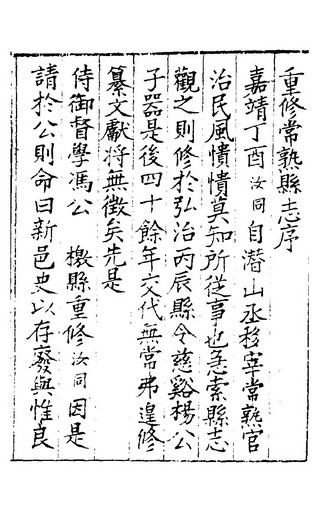 重修常熟縣志序
嘉靖丁酉汝同自潛山丞移宰常熟官
治民風憒憒莫知所從事也急索縣志
觀之則修於弘治丙辰縣令慈谿楊公
子器是後四十餘年交代無常弗遑修
纂文獻將無徵矣先是
侍御督學馮公 檄縣重修汝同因是
請於公則命曰新邑史以存廢與惟良